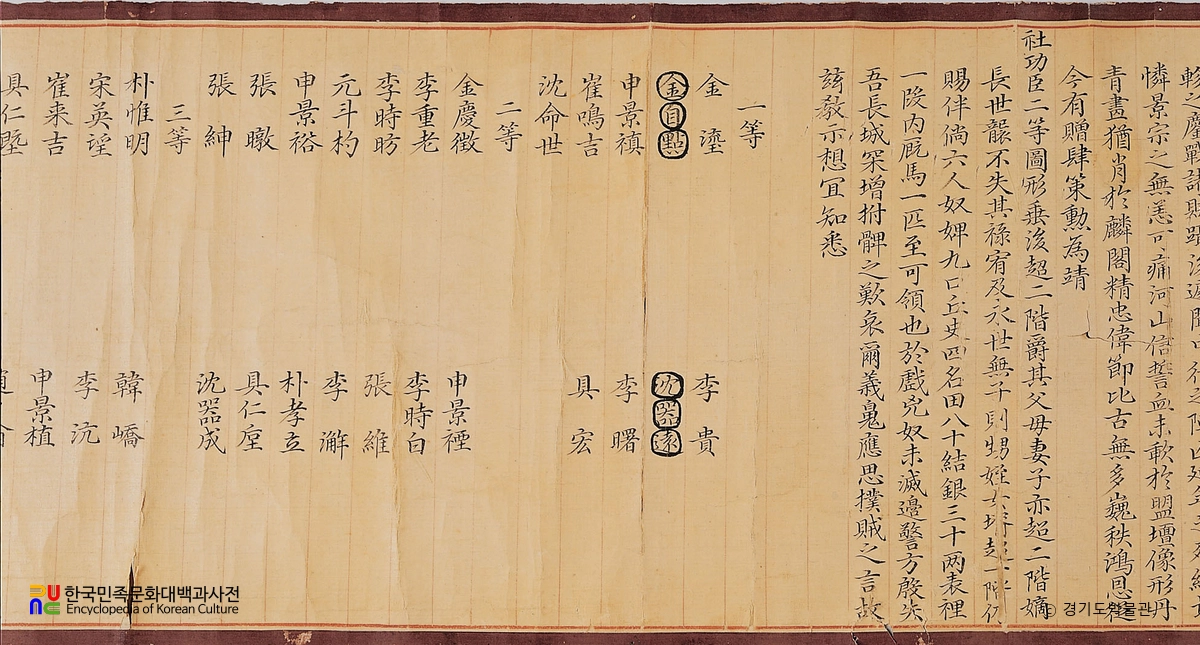 憐景宗之無恙可痛河山信誓血未歃於盟壇像形丹
青畫猶肖於麟閣精忠偉節比古無多巍秩鴻恩
今有贈肆策勳為靖
社功臣二等圖形垂後超二階爵其父母妻子亦超二階嫡
長世襲不失其祿宥及永世無子則甥姪女壻超一階
賜伴倘六人奴婢九口丘史四名田八十結銀三十两表裡
一段內廐馬一匹至可領也於戲兇奴未滅邊警方殷失
吾長城罙增拊髀之歎哀爾義鬼應思撲賊之言故
玆敎示想宜知悉
一等
金瑬 李貴
金自點 沈器遠
申景禛 李曙
崔鳴吉 具宏
沈命世
二等
金慶徵 申景禋
李重老 李時白
李時昉 張維
元斗杓 李澥
申景裕 朴孝立
張暾 具仁垕
張紳 沈器成
三等
朴惟明 韓嶠
宋英望 李沆
崔來吉 申景植
具仁墍
한국민족문화대백과사전
Encyclopedia of Korean Culture
© 경기도박물관